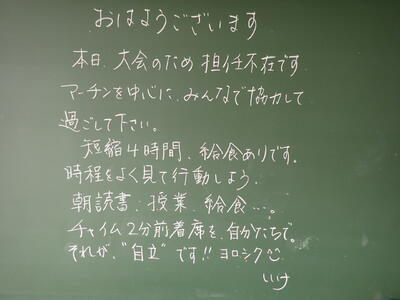 おはようございます
本日、大会のため担任不在です
マーチンを中心に、みんなで協力して
過ごして下さい。
短縮4時間、給食ありです。
時程をよく見て行動しよう.
朝読書、授業、給食…。
チャイム2分前着席を、自分たちで。
それが、"自立"です!! ヨロシク